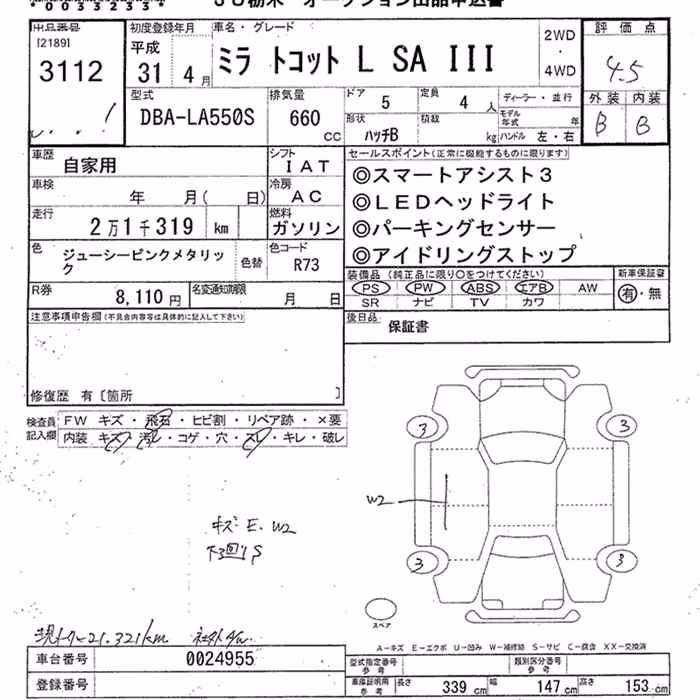 * 0 0 3 3 2 3 3 4 *
JU栃木 オークション出品申込書
出品番号
[2189]
3112
初度登録年月
平成
31 4月
車名・グレード
ミラ トコット L SA III
2WD
・
4WD
評価点
4.5
外装 内装
B B
型式
DBA-LA550S
排気量
660
cc
ドア 5
定員 4人
ディーラー・並行
形状
ハッチB
積載
kg
モデル年式 年
ハンドル 左・右
車歴 自家用
シフト
IAT
車検 年 月( 日)
冷房
AC
走行
2万1千319 km
燃料
ガソリン
色
ジューシーピンクメタリック
色替
色コード
R73
R券 8,110円
名変通知期限 月 日
セールスポイント(正常に機能するものに限ります)
◎スマートアシスト3
◎LEDヘッドライト
◎パーキングセンサー
◎アイドリングストップ
装備品(純正品に限り○をつけてください)
PS PW ABS エアB AW
SR ナビ TV カワ
新車保証書
有・無
後日品 保証書
注意事項申告欄(不具合内容等は具体的に記入して下さい)
修復歴 有〔箇所 〕
検査員記入欄
FW キズ・飛石・ヒビ割・リペア跡・×要
内装 キズ・汚レ・コゲ・穴・スレ・キレ・破レ
3 3
W2
キズ E. W2
下回りS
3 3
スペア
現メーター21,321km 社外
A-キズ E-エクボ U-凹み W-補修跡 S-サビ C-腐食 XX-交換済
車台番号 0024955
登録番号
型式指定番号 参考
類別区分番号 参考
車庫証明用 参考
長さ 339 cm 幅 147 cm 高さ 153 cm